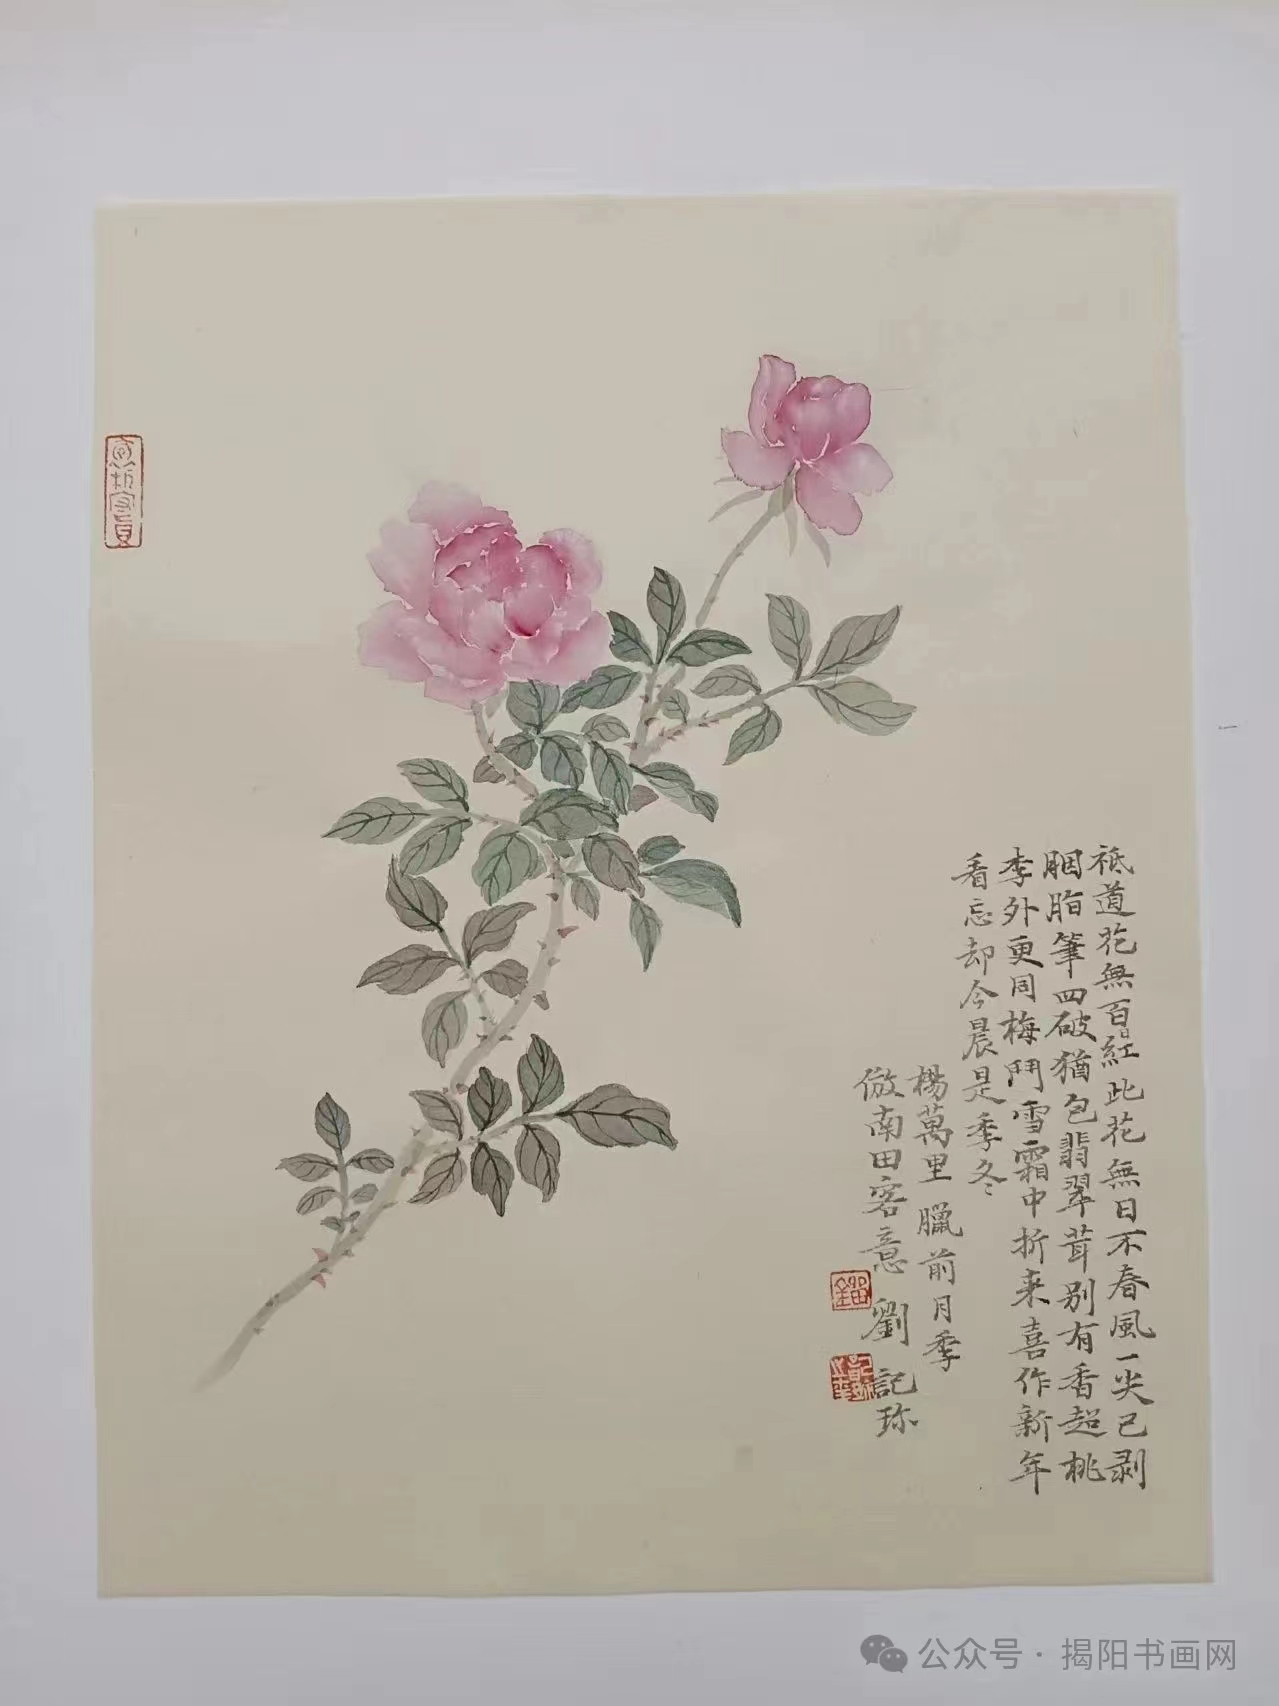 祗道花無百日紅此花無日不春風一尖已剥
胭脂筆四破猶包翡翠茸别有香超桃
季外更同梅鬥雪霜中折来喜作新年
看忘却今晨是季冬
楊萬里臘前月季
倣南田客意 劉記珎
公众号·揭阳书画网